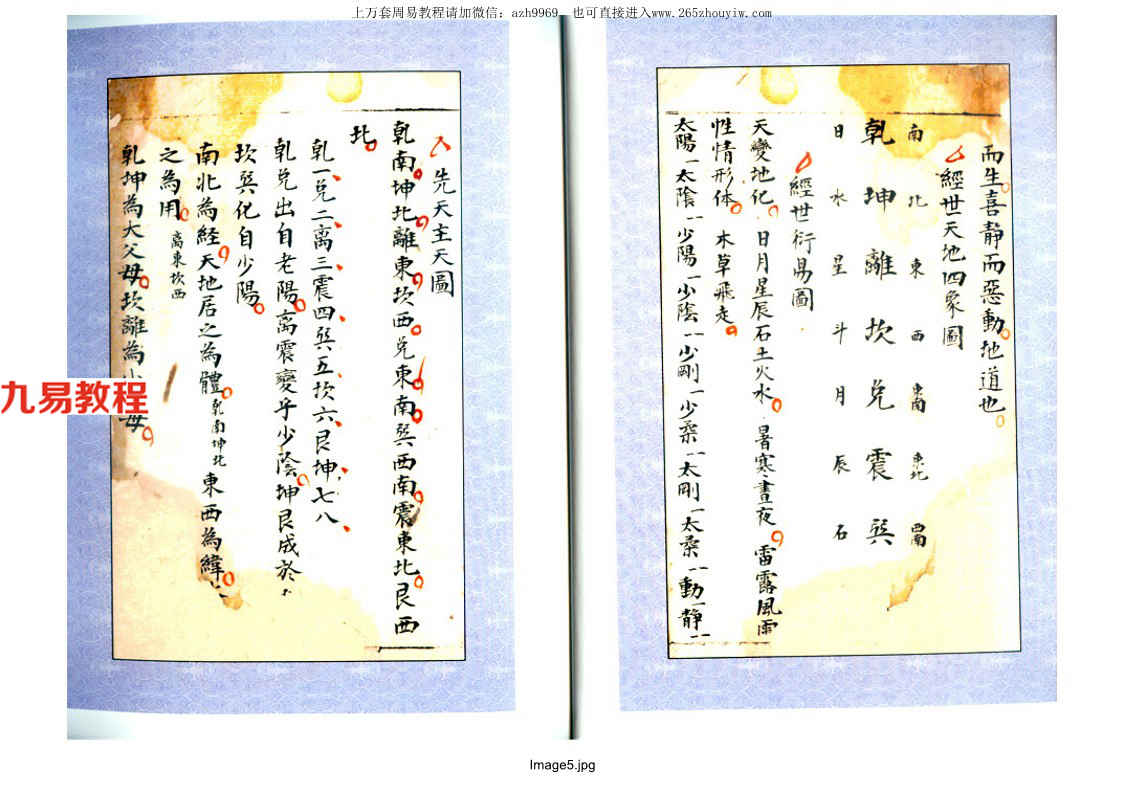 上万套周易教程请加微信：azh9969 也可直接进入www.265zhouyiw.com
而生喜靜而惡動地道也
經世天地四象圖
南 北 東 西 東南 東北 西南
乾 坤 離 坎 兌 震 巽
日 水 星 斗 月 辰 石
經世衍易圖
天變地化 日月星辰石土火水 暑寒晝夜 雷露風雨
性情形体 木草飛走
太陽一太陰一少陽一少陰一少剛一少柔一太剛一太柔一動一靜一
先天主天圖
乾南坤北離東坎西兌東南巽西南震東北艮西
北
乾一兌二离三震四巽五坎六艮坤七八
乾兌出自老陽离震變乎少陰坤艮成於
坎巽化自少陽
南北為経天地居之為體乾南坤北東西為緯
之為用离東坎西
乾坤為大父母坎離為小母
九易教程
Image5.jpg